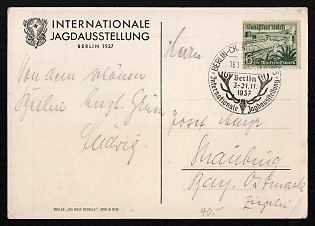 INTERNATIONALE
JAGDAUSSTELLUNG
BERLIN 1937
Deutsches Reich
BERLIN-CH
Berlin
3.-21.11.
1937
Internationale Jagdausstellung
Herrn
Von dem schönen
Berlin herzl. Grüße
Ludwig.
Josef Mayr
Straubing
Bay. Ostmark
Ziegelei
40.-
VERLAG „DIE NEUE SCHULE", BERLIN W 35